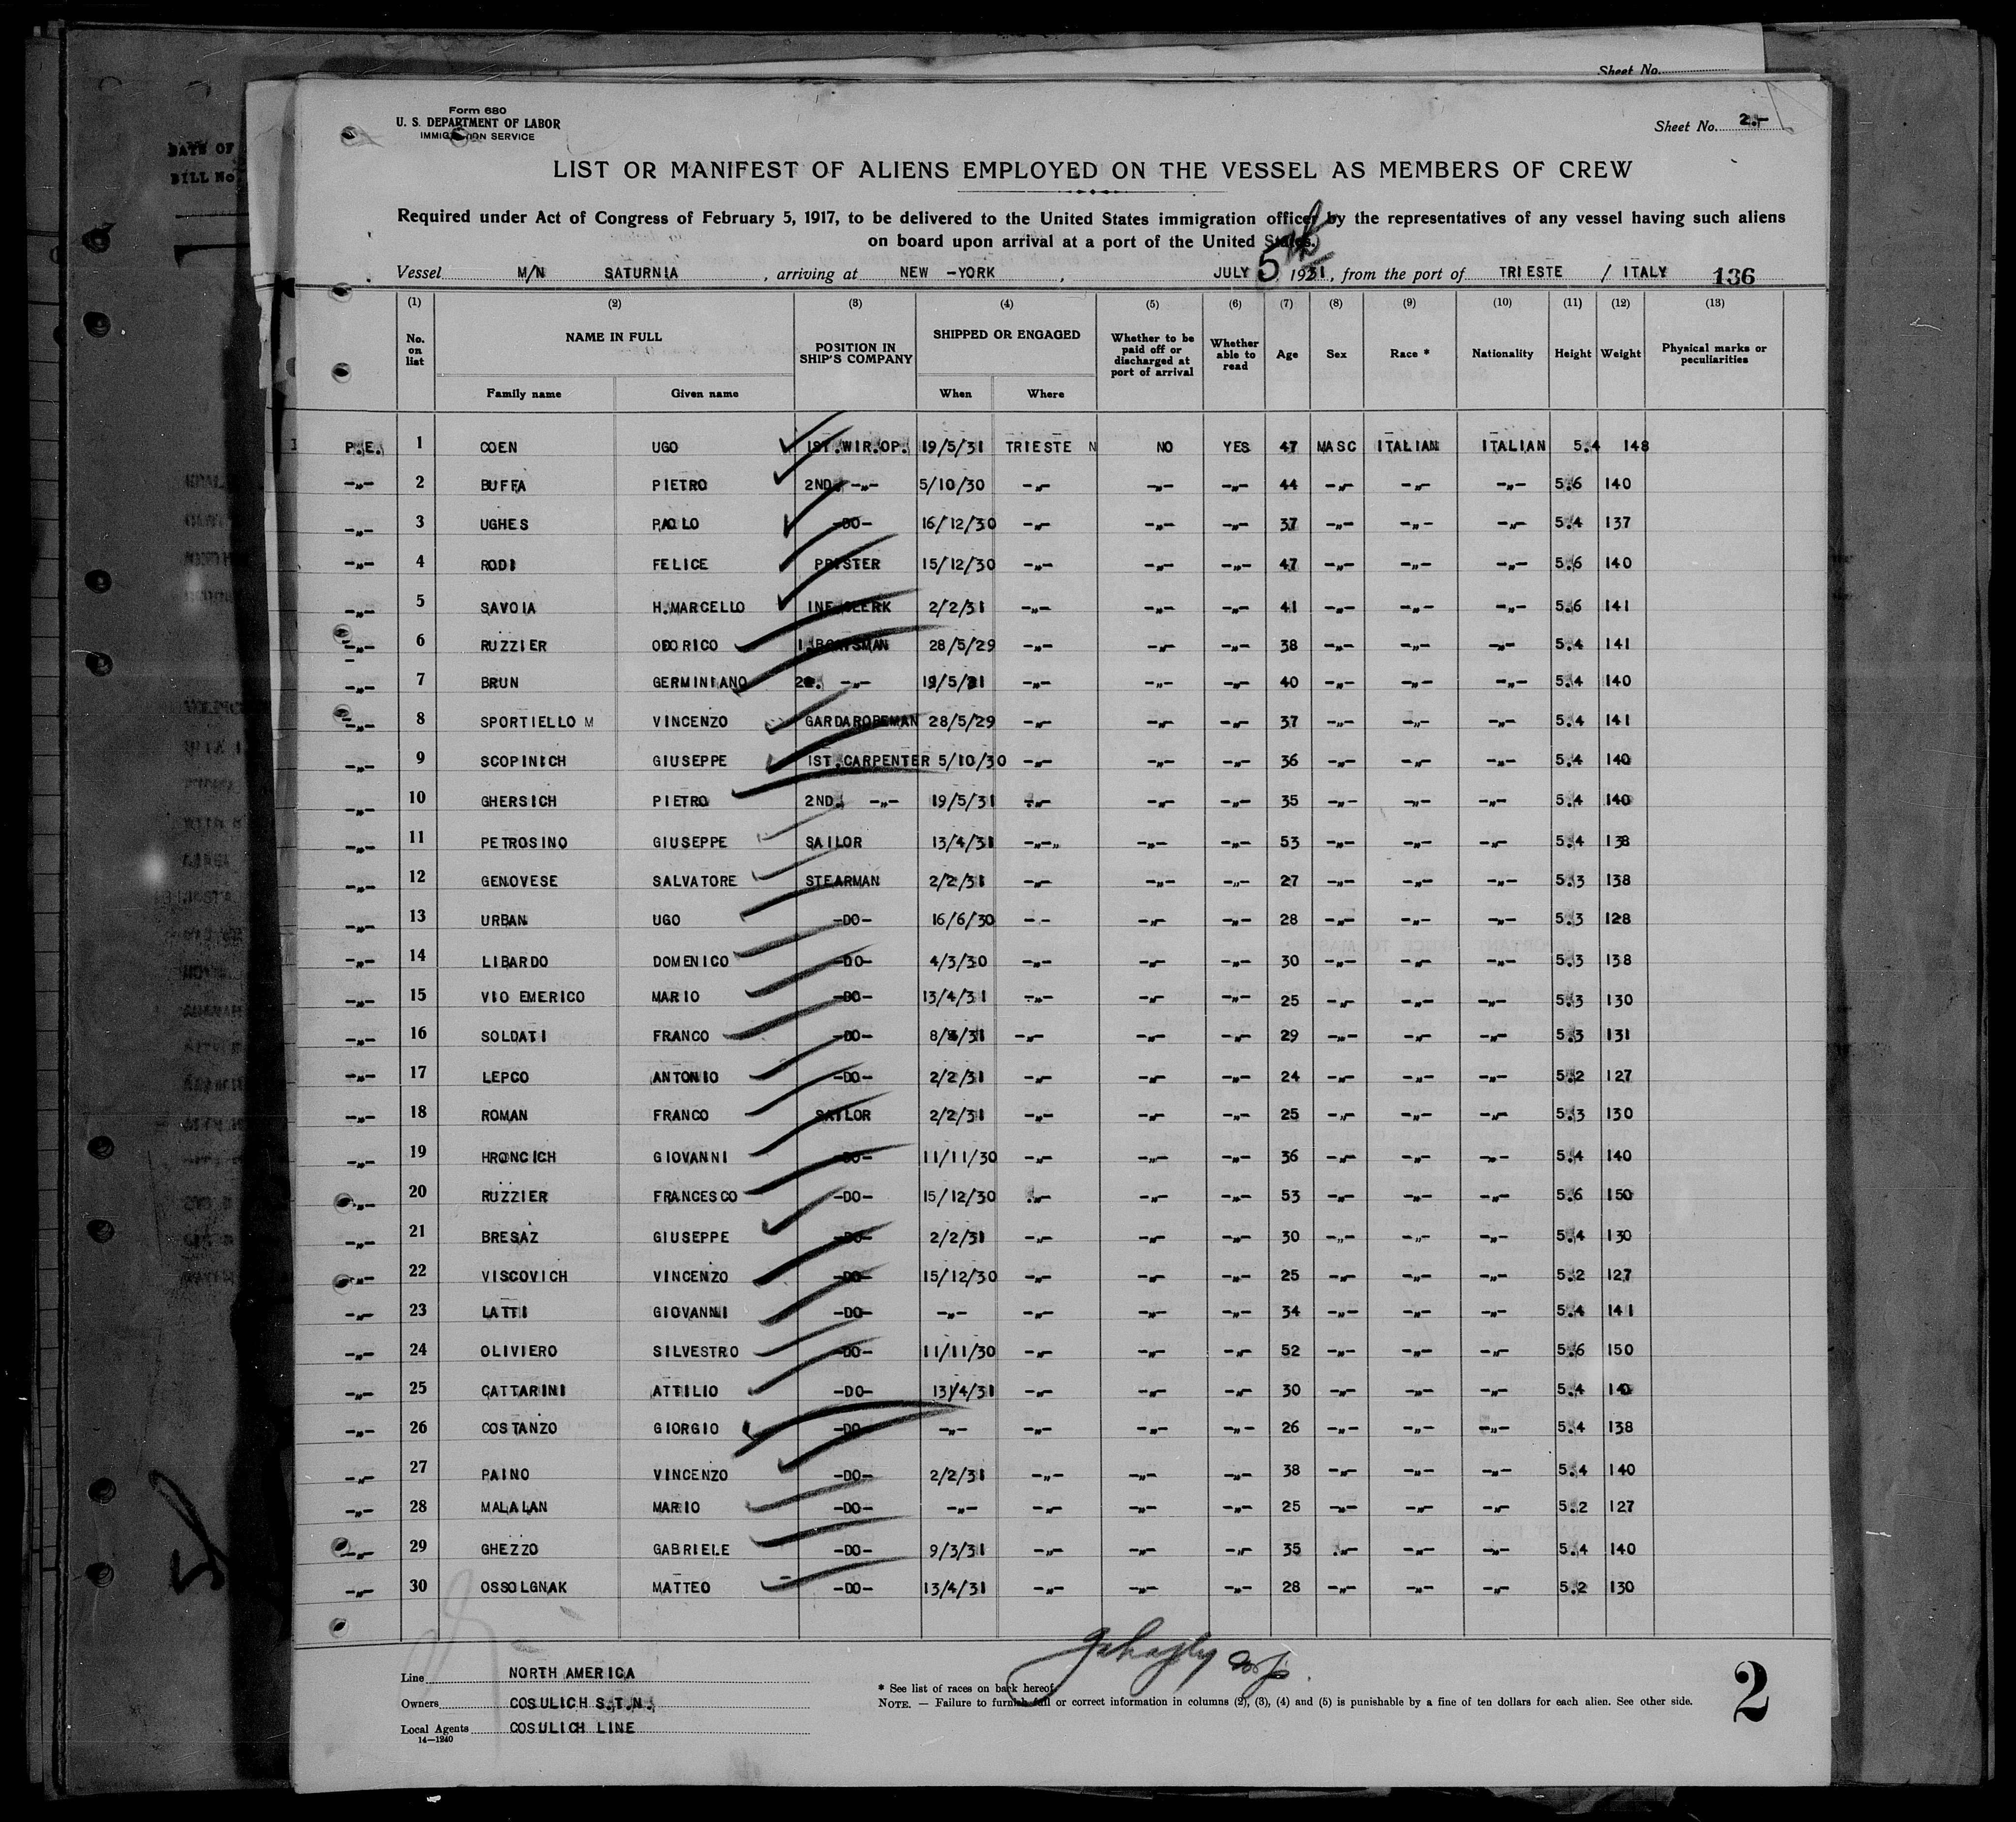 Sheet No.
DATE OF
BILL No.
Form 680
U. S. DEPARTMENT OF LABOR
IMMIGRATION SERVICE
Sheet No. 2.-
LIST OR MANIFEST OF ALIENS EMPLOYED ON THE VESSEL AS MEMBERS OF CREW
Required under Act of Congress of February 5, 1917, to be delivered to the United States immigration officer by the representatives of any vessel having such aliens
on board upon arrival at a port of the United States.
Vessel M/N SATURNIA , arriving at NEW -YORK , JULY 5th 1931, from the port of TRIESTE / ITALY 136
(1) (2) (3) (4) (5) (6) (7) (8) (9) (10) (11) (12) (13)
No. on list NAME IN FULL POSITION IN SHIP'S COMPANY SHIPPED OR ENGAGED Whether to be paid off or discharged at port of arrival Whether able to read Age Sex Race * Nationality Height Weight Physical marks or peculiarities
Family name Given name When Where
P.E. 1 COEN UGO 1ST.WIR.OP. 19/5/31 TRIESTE N NO YES 47 MASC ITALIAN ITALIAN 5.4 148
-"- 2 BUFFA PIETRO 2ND. -"- 5/10/30 -"- -"- -"- 44 -"- -"- -"- 5.6 140
-"- 3 UGHES PAOLO -DO- 16/12/30 -"- -"- -"- 37 -"- -"- -"- 5.4 137
-"- 4 RODI FELICE 15/12/30 -"- -"- -"- 47 -"- -"- -"- 5.6 140
-"- 5 SAVOIA H.MARCELLO INF.CLERK 2/2/31 -"- -"- -"- 41 -"- -"- -"- 5.6 141
-"- 6 RUZZIER ODORICO 1.BOATSMAN 28/5/29 -"- -"- -"- 38 -"- -"- -"- 5.4 141
-"- 7 BRUN GERMINIANO -"- -"- -"- -"- 40 -"- -"- -"- 5.4 140
-"- 8 SPORTIELLO M VINCENZO GARDAROBEMAN 28/5/29 -"- -"- -"- 37 -"- -"- -"- 5.4 141
-"- 9 SCOPINICH GIUSEPPE 1ST.CARPENTER 5/10/30 -"- -"- -"- 36 -"- -"- -"- 5.4 140
-"- 10 GHERSICH PIETRO 2ND. -"- 19/5/31 -"- -"- -"- 35 -"- -"- -"- 5.4 140
-"- 11 PETROSINO GIUSEPPE SAILOR 13/4/31 -"-" -"- -"- 53 -"- -"- -"- 5.4 138
-"- 12 GENOVESE SALVATORE STEARMAN 2/2/31 -"- -"- -"- 27 -"- -"- -"- 5.3 138
-"- 13 URBAN UGO -DO- 16/6/30 - - -"- -"- 28 -"- -"- -"- 5.3 128
-"- 14 LIBARDO DOMENICO -DO- 4/3/30 -"- -"- -"- 30 -"- -"- -"- 5.3 138
-"- 15 VIO EMERICO MARIO -DO- 13/4/31 -"- -"- -"- 25 -"- -"- -"- 5.3 130
-"- 16 SOLDATI FRANCO -DO- -"- -"- -"- 29 -"- -"- -"- 5.3 131
-"- 17 LEPCO ANTONIO -DO- 2/2/31 -"- -"- -"- 24 -"- -"- -"- 5.2 127
-"- 18 ROMAN FRANCO SAILOR 2/2/31 -"- -"- -"- 25 -"- -"- -"- 5.3 130
-"- 19 HRONCICH GIOVANNI -DO- 11/11/30 -"- -"- -"- 36 -"- -"- -"- 5.4 140
-"- 20 RUZZIER FRANCESCO -DO- 15/12/30 -"- -"- -"- 53 -"- -"- -"- 5.6 150
-"- 21 BRESAZ GIUSEPPE -DO- 2/2/31 -"- -"- -"- 30 -"- -"- -"- 5.4 130
-"- 22 VISCOVICH VINCENZO -DO- 15/12/30 -"- -"- -"- 25 -"- -"- -"- 5.2 127
-"- 23 LATTI GIOVANNI -DO- -"- -"- -"- -"- 34 -"- -"- -"- 5.4 141
-"- 24 OLIVIERO SILVESTRO -DO- 11/11/30 -"- -"- -"- 52 -"- -"- -"- 5.6 150
-"- 25 CATTARINI ATTILIO -DO- 13/4/31 -"- -"- -"- 30 -"- -"- -"- 5.4 140
-"- 26 COSTANZO GIORGIO -DO- -"- -"- -"- -"- 26 -"- -"- -"- 5.4 138
-"- 27 PAINO VINCENZO -DO- 2/2/31 -"- -"- -"- 38 -"- -"- -"- 5.4 140
-"- 28 MALALAN MARIO -DO- -"- -"- -"- -"- 25 -"- -"- -"- 5.2 127
-"- 29 GHEZZO GABRIELE -DO- 9/3/31 -"- -"- -"- 35 -"- -"- -"- 5.4 140
-"- 30 OSSOLGNAK MATTEO -DO- 13/4/31 -"- -"- -"- 28 -"- -"- -"- 5.2 130
Line NORTH AMERICA
Owners COSULICH S.T.N.
Local Agents COSULICH LINE
14—1240
* See list of races on back hereof.
NOTE. — Failure to furnish full or correct information in columns (2), (3), (4) and (5) is punishable by a fine of ten dollars for each alien. See other side.
2